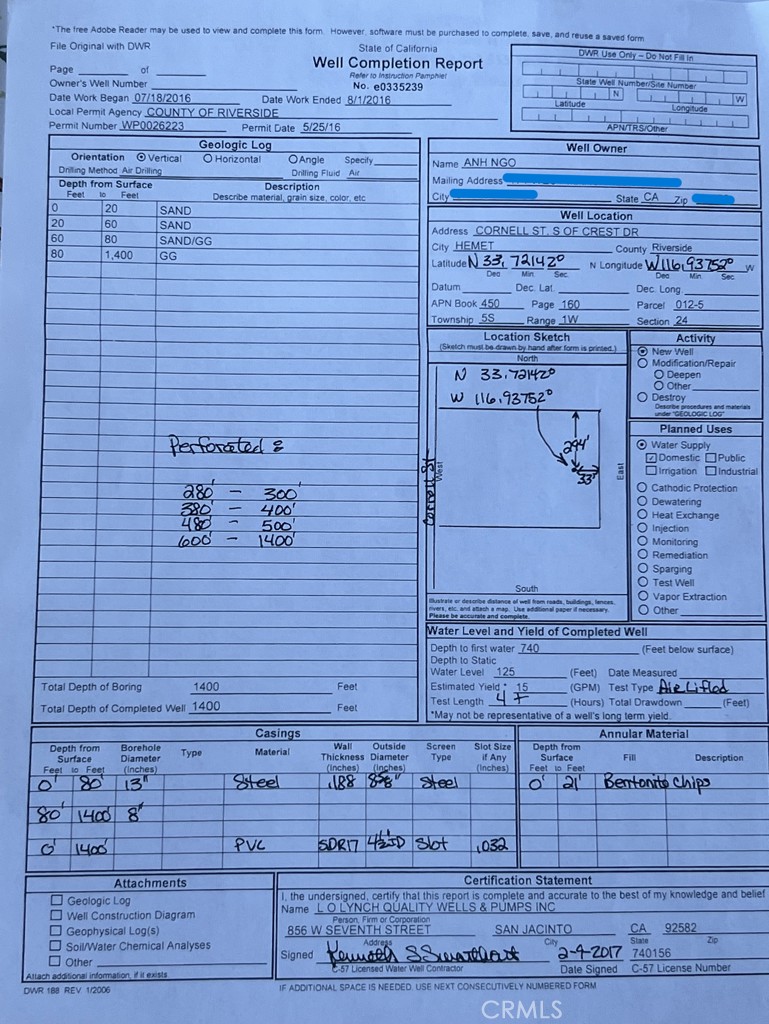 *The free Adobe Reader may be used to view and complete this form. However, software must be purchased to complete, save, and reuse a saved form.
File Original with DWR
State of California
Well Completion Report
Refer to Instruction Pamphlet
No. e0335239
Page of
Owner's Well Number
Date Work Began 07/18/2016 Date Work Ended 8/1/2016
Local Permit Agency COUNTY OF RIVERSIDE
Permit Number WP0026223 Permit Date 5/25/16
DWR Use Only – Do Not Fill In
State Well Number/Site Number
N W
Latitude Longitude
APN/TRS/Other
Geologic Log
Orientation Vertical Horizontal Angle Specify
Drilling Method Air Drilling Drilling Fluid Air
Depth from Surface Description
Feet to Feet Describe material, grain size, color, etc
0 20 SAND
20 60 SAND
60 80 SAND/GG
80 1,400 GG
Perforated :
280' – 300'
380' – 400'
480' – 500'
600' – 1400'
Total Depth of Boring 1400 Feet
Total Depth of Completed Well 1400 Feet
Well Owner
Name ANH NGO
Mailing Address
City State CA Zip
Well Location
Address CORNELL ST. S OF CREST DR
City HEMET County Riverside
Latitude N 33.72142° N Longitude W116.93752° W
Dec. Min. Sec. Dec. Min. Sec.
Datum Dec. Lat. Dec. Long.
APN Book 450 Page 160 Parcel 012-5
Township 5S Range 1W Section 24
Location Sketch
(Sketch must be drawn by hand after form is printed.)
North
N 33.72142°
W 116.93752°
294'
33'
Cornell St.
West
East
South
Illustrate or describe distance of well from roads, buildings, fences,
rivers, etc. and attach a map. Use additional paper if necessary.
Please be accurate and complete.
Activity
New Well
Modification/Repair
Deepen
Other
Destroy
Describe procedures and materials
under "GEOLOGIC LOG"
Planned Uses
Water Supply
Domestic Public
Irrigation Industrial
Cathodic Protection
Dewatering
Heat Exchange
Injection
Monitoring
Remediation
Sparging
Test Well
Vapor Extraction
Other
Water Level and Yield of Completed Well
Depth to first water 740 (Feet below surface)
Depth to Static
Water Level 125 (Feet) Date Measured
Estimated Yield * 15 (GPM) Test Type Air Lifted
Test Length 4 + (Hours) Total Drawdown (Feet)
*May not be representative of a well's long term yield.
Casings
Depth from Surface Feet to Feet Borehole Diameter (Inches) Type Material Wall Thickness (Inches) Outside Diameter (Inches) Screen Type Slot Size if Any (Inches)
0' 80' 13" Steel .188 8 5/8" Steel
80' 1400' 8"
0' 1400' PVC SDR17 4 1/2 ID Slot .032
Annular Material
Depth from Surface Feet to Feet Fill Description
0' 21' Bentonite Chips
Attachments
Geologic Log
Well Construction Diagram
Geophysical Log(s)
Soil/Water Chemical Analyses
Other
Attach additional information, if it exists.
Certification Statement
I, the undersigned, certify that this report is complete and accurate to the best of my knowledge and belief
Name L O LYNCH QUALITY WELLS & PUMPS INC
Person, Firm or Corporation
856 W SEVENTH STREET SAN JACINTO CA 92582
Address City State Zip
Signed 2-4-2017 740156
C-57 Licensed Water Well Contractor Date Signed C-57 License Number
DWR 188 REV. 1/2006
IF ADDITIONAL SPACE IS NEEDED, USE NEXT CONSECUTIVELY NUMBERED FORM
CRMLS